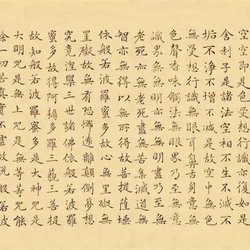 空空即是色受想行識亦復如是
舍利子是諸法空相不生不滅不
垢不淨不增不減是故空中無色
無受想行識無眼耳鼻舌身意無
色聲香味觸法無眼界乃至無意
識界無無明亦無無明盡乃至無
老死亦無老死盡無苦集滅道無
智亦無得以無所得故菩提薩埵
依般若波羅蜜多故心無罣礙無
罣礙故無有恐怖遠離顛倒夢想
究竟涅槃三世諸佛依般若波羅
蜜多故得阿耨多羅三藐三菩提
故知般若波羅蜜多是大神咒是
大明咒是無上咒是無等等咒能
除一切苦真實不虛故說般若波